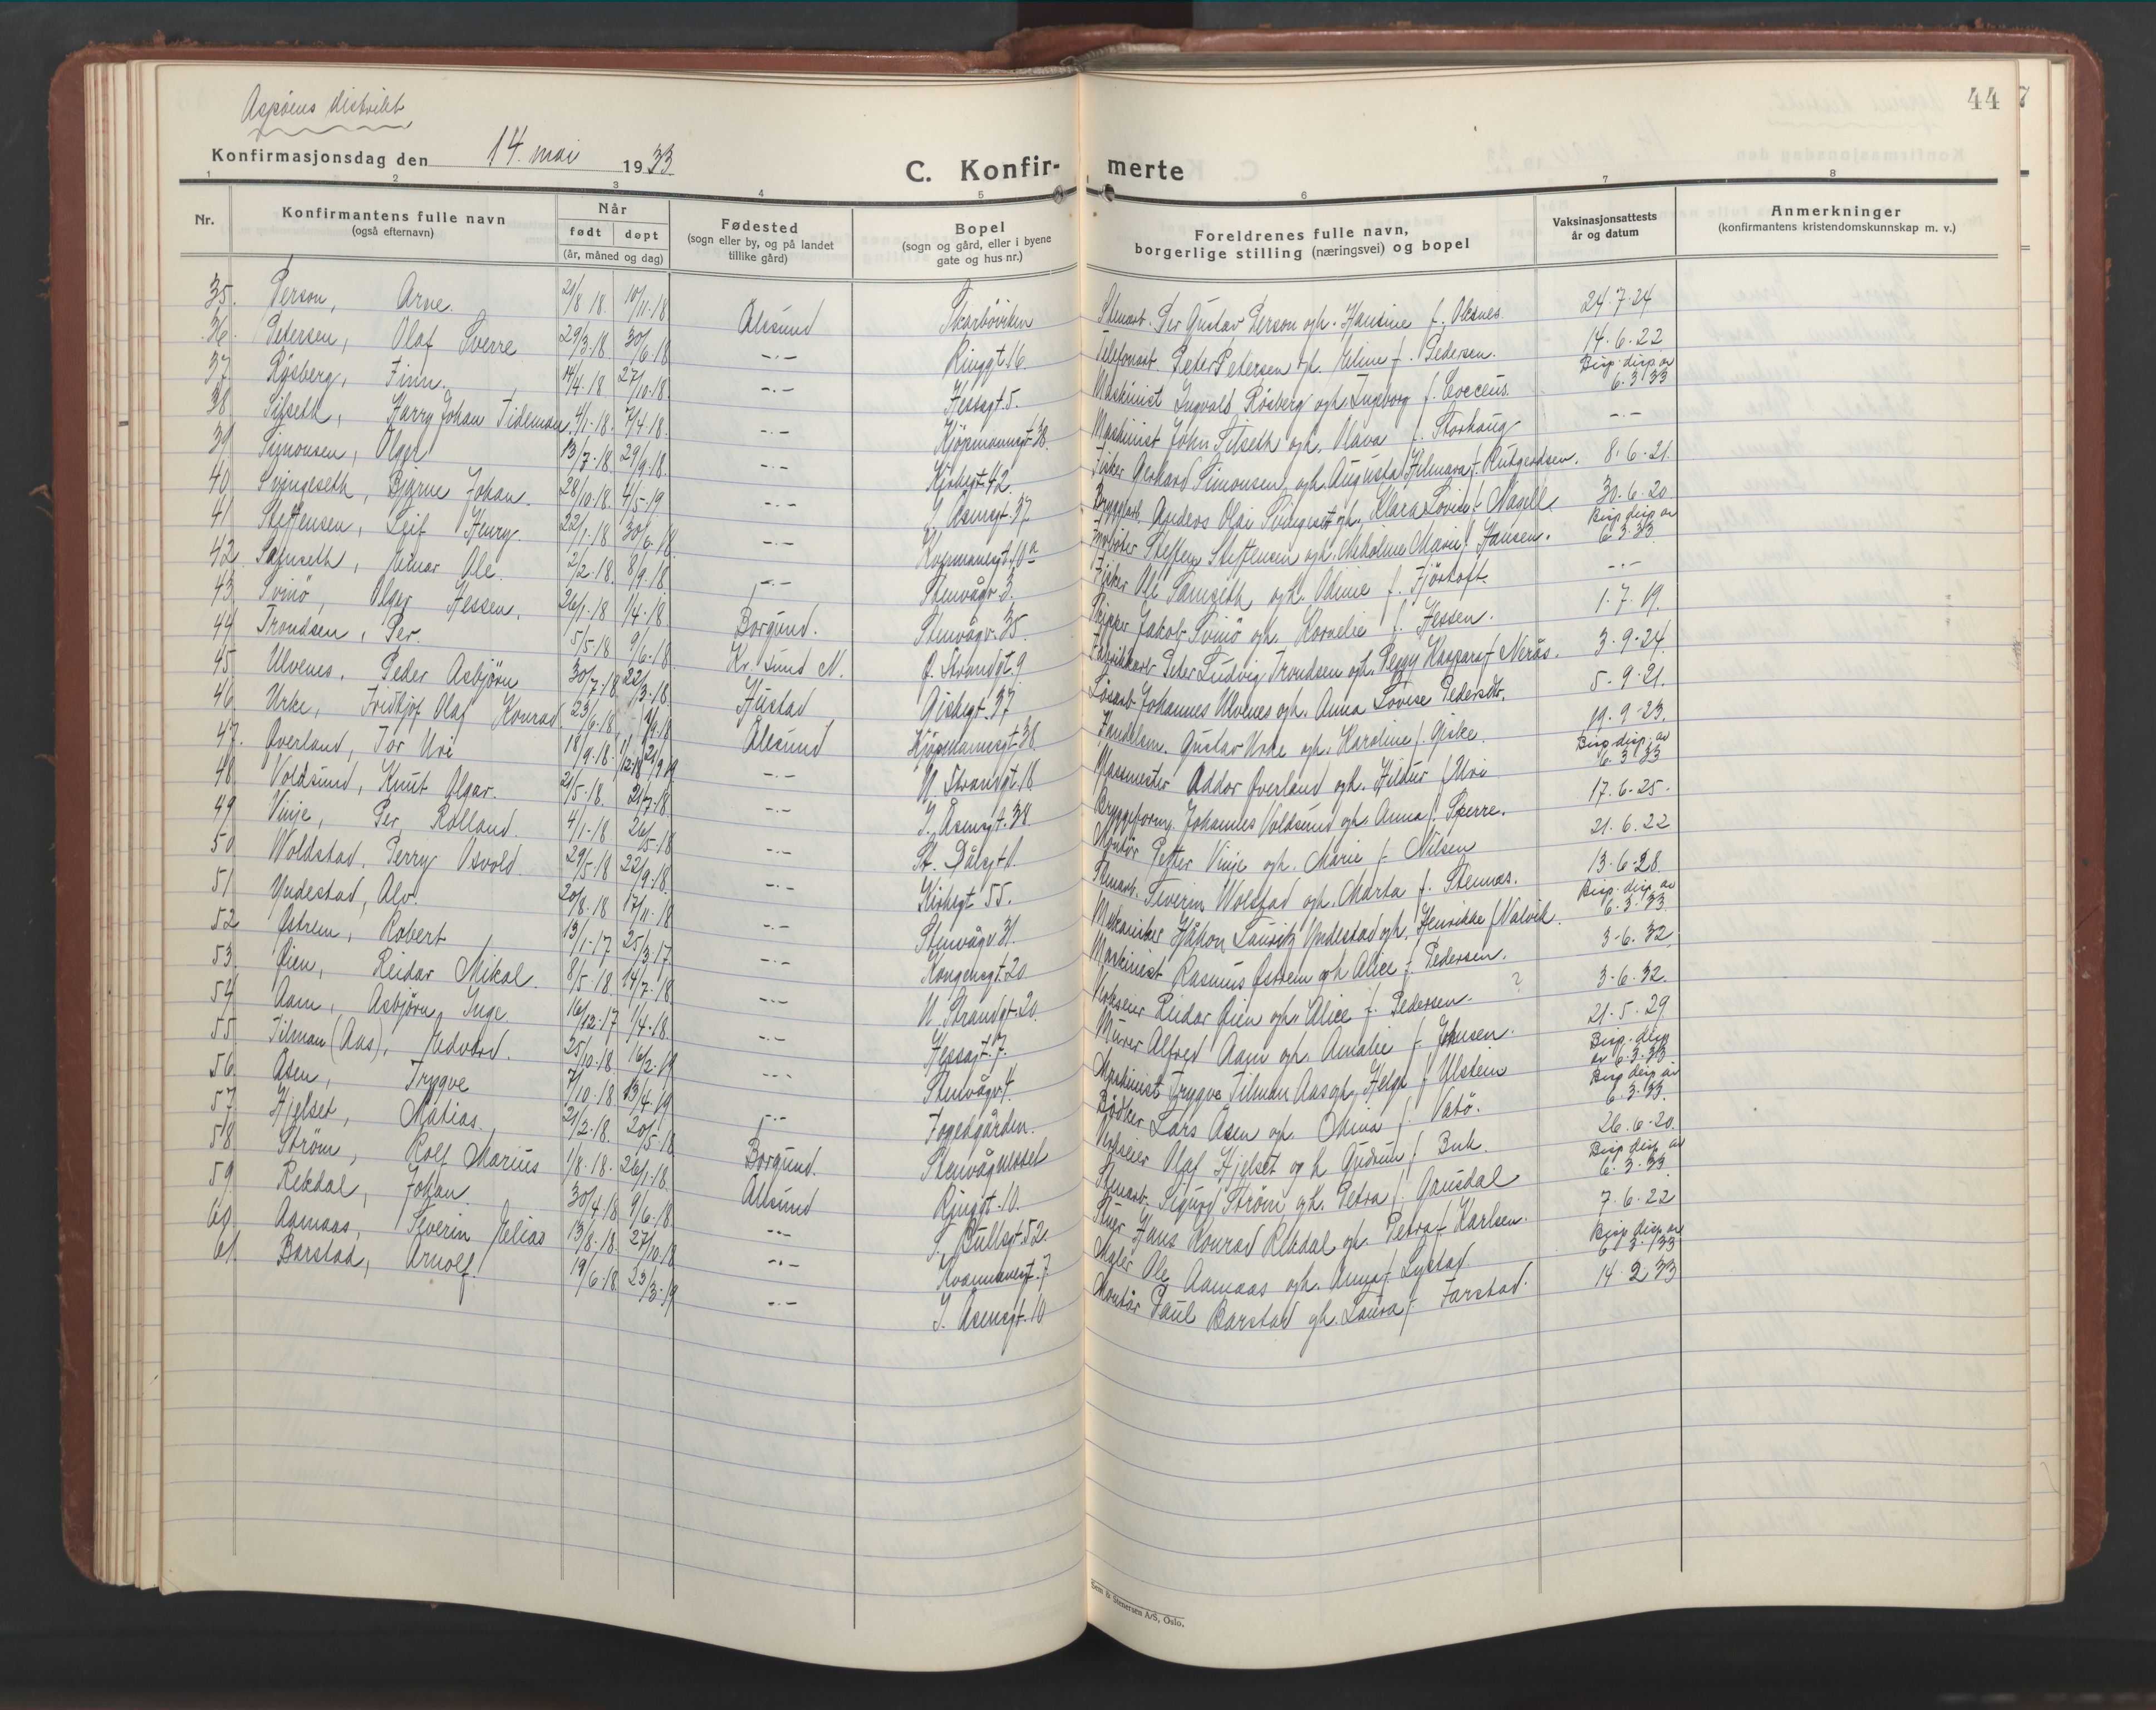 Aspöens distrikt
44
Konfirmasjonsdag den 14. mai 1933
C. Konfir- merte
1 2 3 4 5 6 7 8
Nr. Konfirmantens fulle navn (også efternavn) Når født døpt (år, måned og dag) Fødested (sogn eller by, og på landet tillike gård) Bopel (sogn og gård, eller i byene gate og hus nr.) Foreldrenes fulle navn, borgerlige stilling (næringsvei) og bopel Vaksinasjonsattests år og datum Anmerkninger (konfirmantens kristendomskunnskap m. v.)
35. Person, Arne. 21/8 18. 10/11.18 Ålesund Skarböviken Stenarb. Per Gustav Person og h. Hansine f. Olesnes 24.7.24
36. Petersen, Olaf Sverre 29/3.18 30/6.18 -.- Ringgt. 16. Telefonarb. Peter Petersen og h. Eline f. Pedersen. 14.6.22
37 Røsberg, Finn. 14/4.18 27/10.18 -.- Hessagt 5. Maskinist Ingvald Røsberg og h. Ingeborg f. Cocceus. Bisp. disp. av 6.3.33
38 Silseth, Harry Johan Tideman 4/1.18. 7/4.18. -.- Kjöpmannsgt. 38. Maskinist John Silseth og h. Olava f. Storhaug -.-
39 Simonsen, Olger 13/7.18 29/9.18 -.- Kirkegt. 42. Fisker Gerhard Simonsen og h. Augusta Hilmara f. Rutgerdsen. 8.6.21.
40 Svingeseth, Bjarne Johan. 28/10.18. 4/5-19 -.- I. Åsensgt. 37 Bryggearb. Anders Olai Svingeset og h. Klara Lovise f. Nagell. 30.6.20.
41 Steffensen, Leif Henry. 22/1.18 30/6.18. -.- Kornmansgt. 10a Steffen Steffensen og h. Nikoline Marie f. Hansen. Bisp disp av 6.3.33
42. Samseth, Einar Ole. 2/2.18. 8/9.18 -.- Stenvågv. 3. Fisker Ole Samseth og h. Odine f. Fjörtoft -.-
43 Svinö, Olger Hessen. 26/1.18 1/4.18 Borgund. Stenvågv. 35. Skipper Jakob Svinö og h. Kornelie f. Hessen. 1.7.19.
44 Trondsen, Per. 5/5.18 9/6.18 Kr. sund N. Ø. Strandgt. 9 Fabrikkarb. Peder Ludvig Trondsen og h. Peggy Kaspara f. Nerås. 3.9.24.
45 Ulvenes, Peder Asbjörn 30/7.18 22/3.18. Hustad Giskegt. 37 Lösarb. Johannes Ulvenes og h. Anna Lovise Pedersdtr. 5.9.21.
46 Urke, Fridtjof Olaf Konrad 23/6.18 1/9.18 Ålesund Kjöpmannsgt. 38 Handelsm. Gustav Urke og h. Karoline f. Giske. 19.9.23.
47. Øverland, Tor Uri 18/9.18. -.- N. Strandgt. 18 Addor Øverland og h. Hildur f. Uri Bisp disp. av 6.3.33
48. Voldsund, Knut Olgar. 21/5.18. 21/7.18 -.- I. Åsensgt. 38 Bryggeform. Johannes Voldsund og h. Anna f. Sperre. 17.6.25.
49 Vinje, Per Rolland. 4/1.18 26/5.18 -.- St. Pålsgt 1. Montör Petter Vinje og h. Marie f. Nilsen 21.6.22
50 Woldstad, Perry Osvold. 29/5.18 22/9.18. -.- Kirkegt 55. Stenarb. Severin Wolstad og h. Marta f. Stennes. 13.6.28.
51 Yndestad, Alv. 20/8.18 17/11.18 -.- Stenvågv. 31. Mekaniker Håkon Lauritz Yndestad og h. Henrikke f. Nalvik. Bisp. disp. av 6.3.33
52 Østrem, Robert 13/1.17 25/3.17 -.- Kongensgt. 20 Maskinist Rasmus Østrem og h Alice f. Pedersen. 3.6.32.
53 Øien, Reidar Mikal. 8/5.18. 14/7.18 -.- N. Strandgt. 20. Reidar Øien og h. Alice f. Pedersen. ? 3.6.32.
54 Aam, Asbjörn Inge. 16/12.17 1/4.18. -.- Hessagt. 7. Murer Alfred Aam og h. Amalie f. Johnsen. 21.5.29
55 Tilman (Aas), Edvard. 25/10.18. 16/2.19 -.- Stenvågv 4. Maskinist Trygve Tilman Aas og h. Helga f. Ulstein Bisp. disp av 6.3.33
56 Åsen, Trygve 7/10.18 13/4.19 -.- Fogedgården. Bödker Lars Åsen og h. Olina f. Vatö. Bisp disp av 6.3.33.
57 Hjelset, Matias. 21/2.18. 20/5.18 Borgund. Stenvågnesset Olaf Hjelset og h Gudrun f. Buk. 26.6.20.
58 Ström, Rolf Marius 1/8.18. 26/1.18. Ålesund Ringgt. 10. Stenarb. Sigurd Ström og h. Petra f. Gausdal Bisp disp av 6.3.33.
59 Rekdal, Johan. 30/4.18 9/6.18. -.- I. Bullsgt. 52. Stuer Hans Konrad Rekdal og h. Petra f. Karlsen. 7.6.22
60. Aamaas, Severin Elias 13/8.18. 27/10.18 -.- Kornmansgt. 7 Maler Ole Aamaas og h. Anna f. Lystad. Bisp disp av 6.3.33
61. Barstad, Arnolf. 19/6.18 23/3.19 -.- I. Åsensgt. 10 Montör Paul Barstad og h. Laura f. Farstad. 14.2.33
Sem & Stenersen A/S, Oslo.